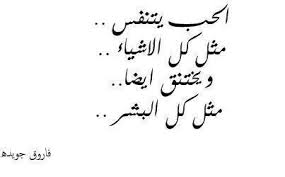 الحب يتنفس ..
مثل كل الاشياء ..
ويختنق ايضا..
مثل كل البشر ..
فاروق جويده